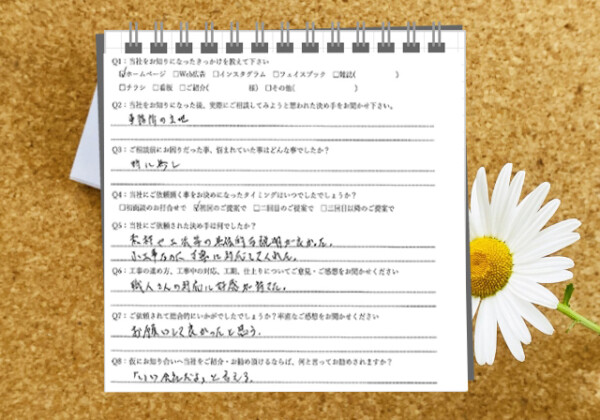 Q1：当社をお知りになったきっかけを教えて下さい
☑ホームページ □Web広告 □インスタグラム □フェイスブック □雑誌( )
□チラシ □看板 □ご紹介( 様) □その他( )
Q2：当社をお知りになった後、実際にご相談してみようと思われた決め手をお聞かせ下さい。
事務所の立地
Q3：ご相談前にお困りだった事、悩まれていた事はどんな事でしたか？
特に無し
Q4：当社にご依頼頂く事をお決めになったタイミングはいつでしたでしょうか？
□初面談のお打合せで ☑初回のご提案で □二回目のご提案で □三回目以降のご提案で
Q5：当社にご依頼された決め手は何でしたか？
素材や工法等の具体的な説明が良かった。
小工事なのに丁寧に対応してくれた。
Q6：工事の進め方、工事中の対応、工期、仕上りについてご意見・ご感想をお聞かせください
職人さんの対応に好感が持てた。
Q7：ご依頼されて総合的にいかがでしたでしょうか？率直なご感想をお聞かせください
お願いして良かったと思う。
Q8：仮にお知り合いへ当社をご紹介・お勧め頂けるならば、何と言ってお勧めされますか？
「いい会社だよ」と言える。